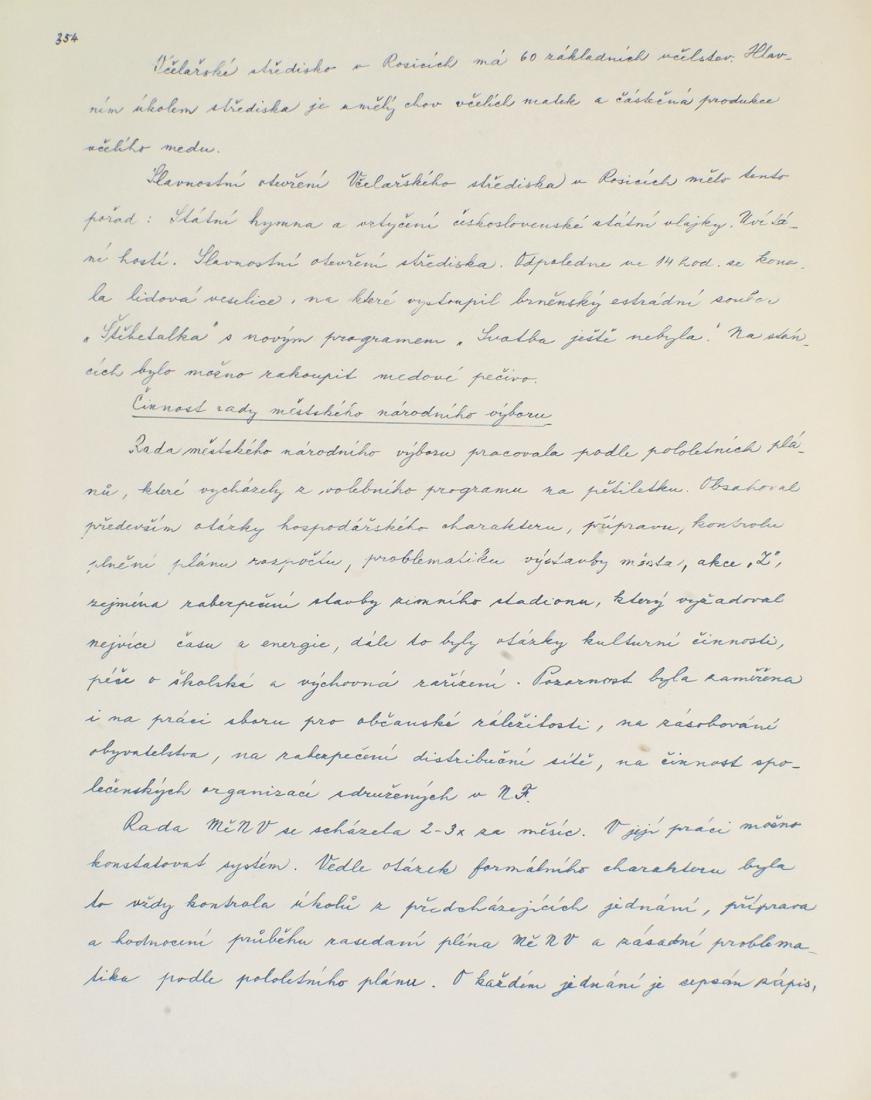 354
Včelařské středisko v Rosicích má 60 základních včelstev. Hlav-
ním úkolem střediska je umělý chov včelích matek a částečná produkce
včelího medu.
Slavnostní otevření Včelařského střediska v Rosicích mělo tento
pořad : Státní hymna a vztyčení československé státní vlajky. Uvítá-
ní hostí. Slavnostní otevření střediska. Odpoledne ve 14 hod. se kona-
la lidová veselice, na které vystoupil brněnský estrádní soubor
„Štibetalka" s novým programem „Svatba ještě nebyla." Na stán-
cích bylo možno zakoupit medové pečivo.
Činnost rady městského národního výboru
Rada městského národního výboru pracovala podle pololetních plá-
nů, které vycházely z volebního programu na pětiletku. Obsahoval
především otázky hospodářského charakteru, přípravu, kontrolu
plnění plánu rozpočtu, problematiku výstavby města, akce „Z",
zejména zabezpečení stavby zimního stadionu, který vyžadoval
nejvíce času a energie, dále to byly otázky kulturní činnosti,
péče o školská a výchovná zařízení. Pozornost byla zaměřena
i na práci sboru pro občanské záležitosti, na zásobování
obyvatelstva, na zabezpečení distribuční sítě, na činnost spo-
lečenských organizací sdružených v NF.
Rada MěNV se scházela 2-3x za měsíc. V její práci možno
konstatovat systém. Vedle otázek formálního charakteru byla
to vždy kontrola úkolů z předcházejících jednání, příprava
a hodnocení průběhu zasedání pléna MěNV a zásadní problema-
tika podle pololetního plánu. O každém jednání je sepsán zápis,